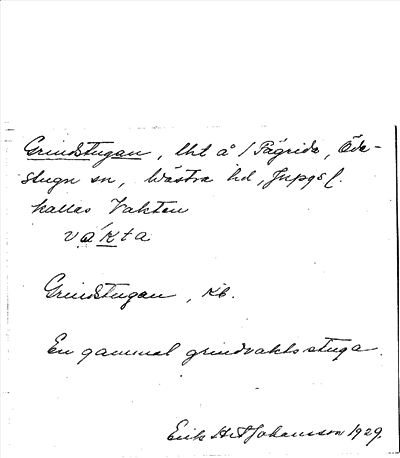 Grindstugan, lht å 1 Pägrida, Öde-
stugn sn, Västra hd, Jnpgs l.
kallas Vakten
vák̲ta
Grindstugan, Kb.
En gammal grindvaktsstuga.
Erik Johansson 1929.